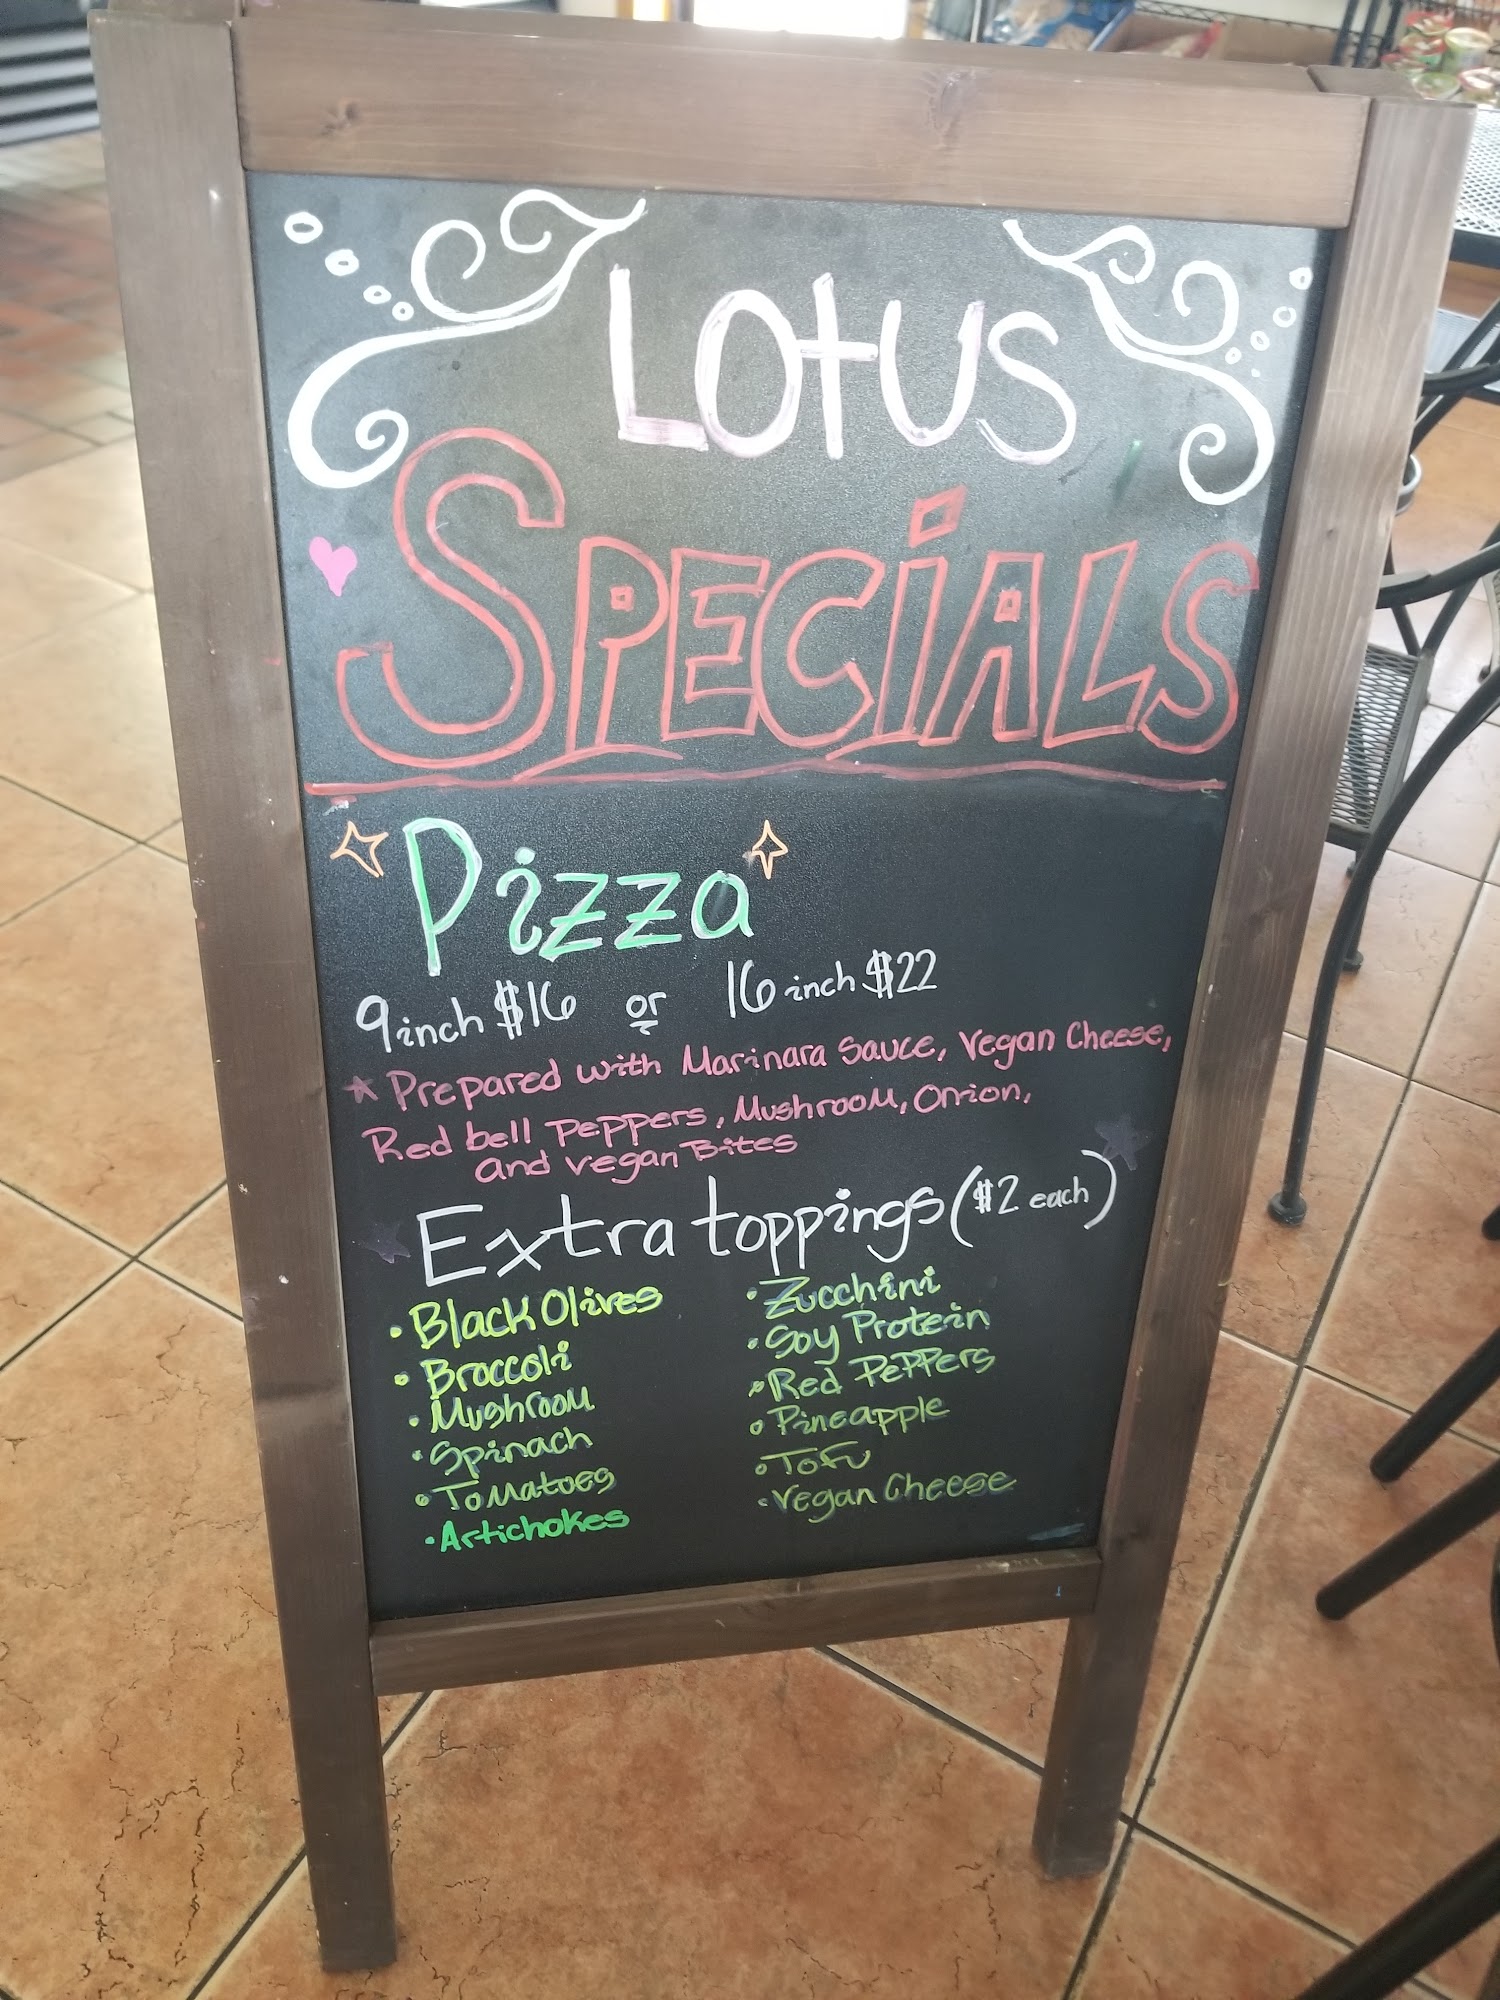 Lotus
Specials
Pizza
9 inch $16 or 16 inch $22
* Prepared with Marinara Sauce, Vegan Cheese,
Red bell Peppers, Mushroom, Onion,
and vegan Bites
Extra toppings ($2 each)
• Black Olives
• Broccoli
• Mushroom
• Spinach
• Tomatoes
• Artichokes
• Zucchini
• Soy Protein
• Red Peppers
• Pineapple
• Tofu
• Vegan Cheese